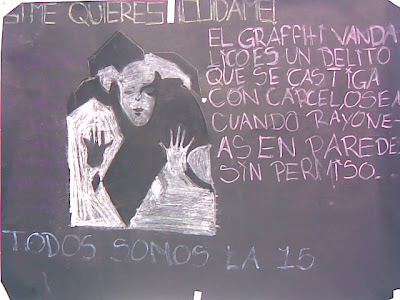 SI ME QUIERES CUIDAME!
EL GRAFFITI VANDA
LICO ES UN DELITO
QUE SE CASTIGA
CON CARCEL, OSEA
CUANDO RAYONE-
AS EN PAREDES
SIN PERMISO.
TODOS SOMOS LA 15